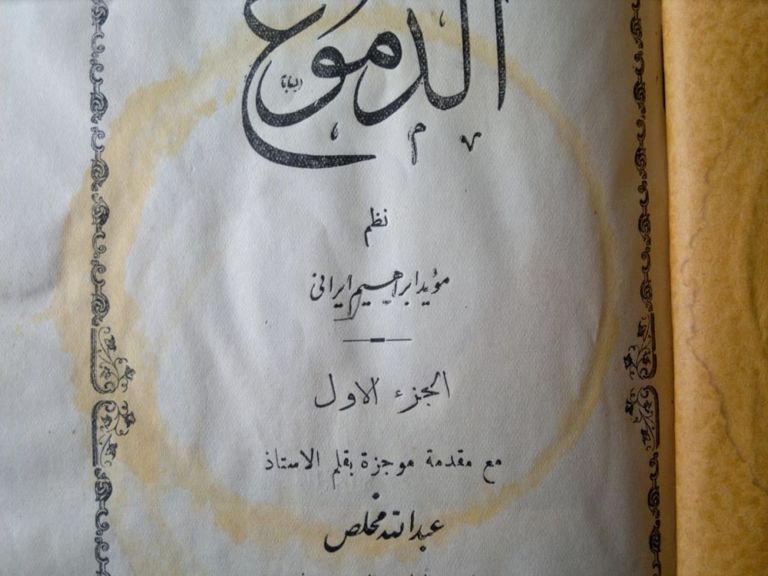 الدموع
نظم
مؤيد ابراهيم ايراني
الجزء الاول
مع مقدمة موجزة بقلم الاستاذ
عبدالله مخلص